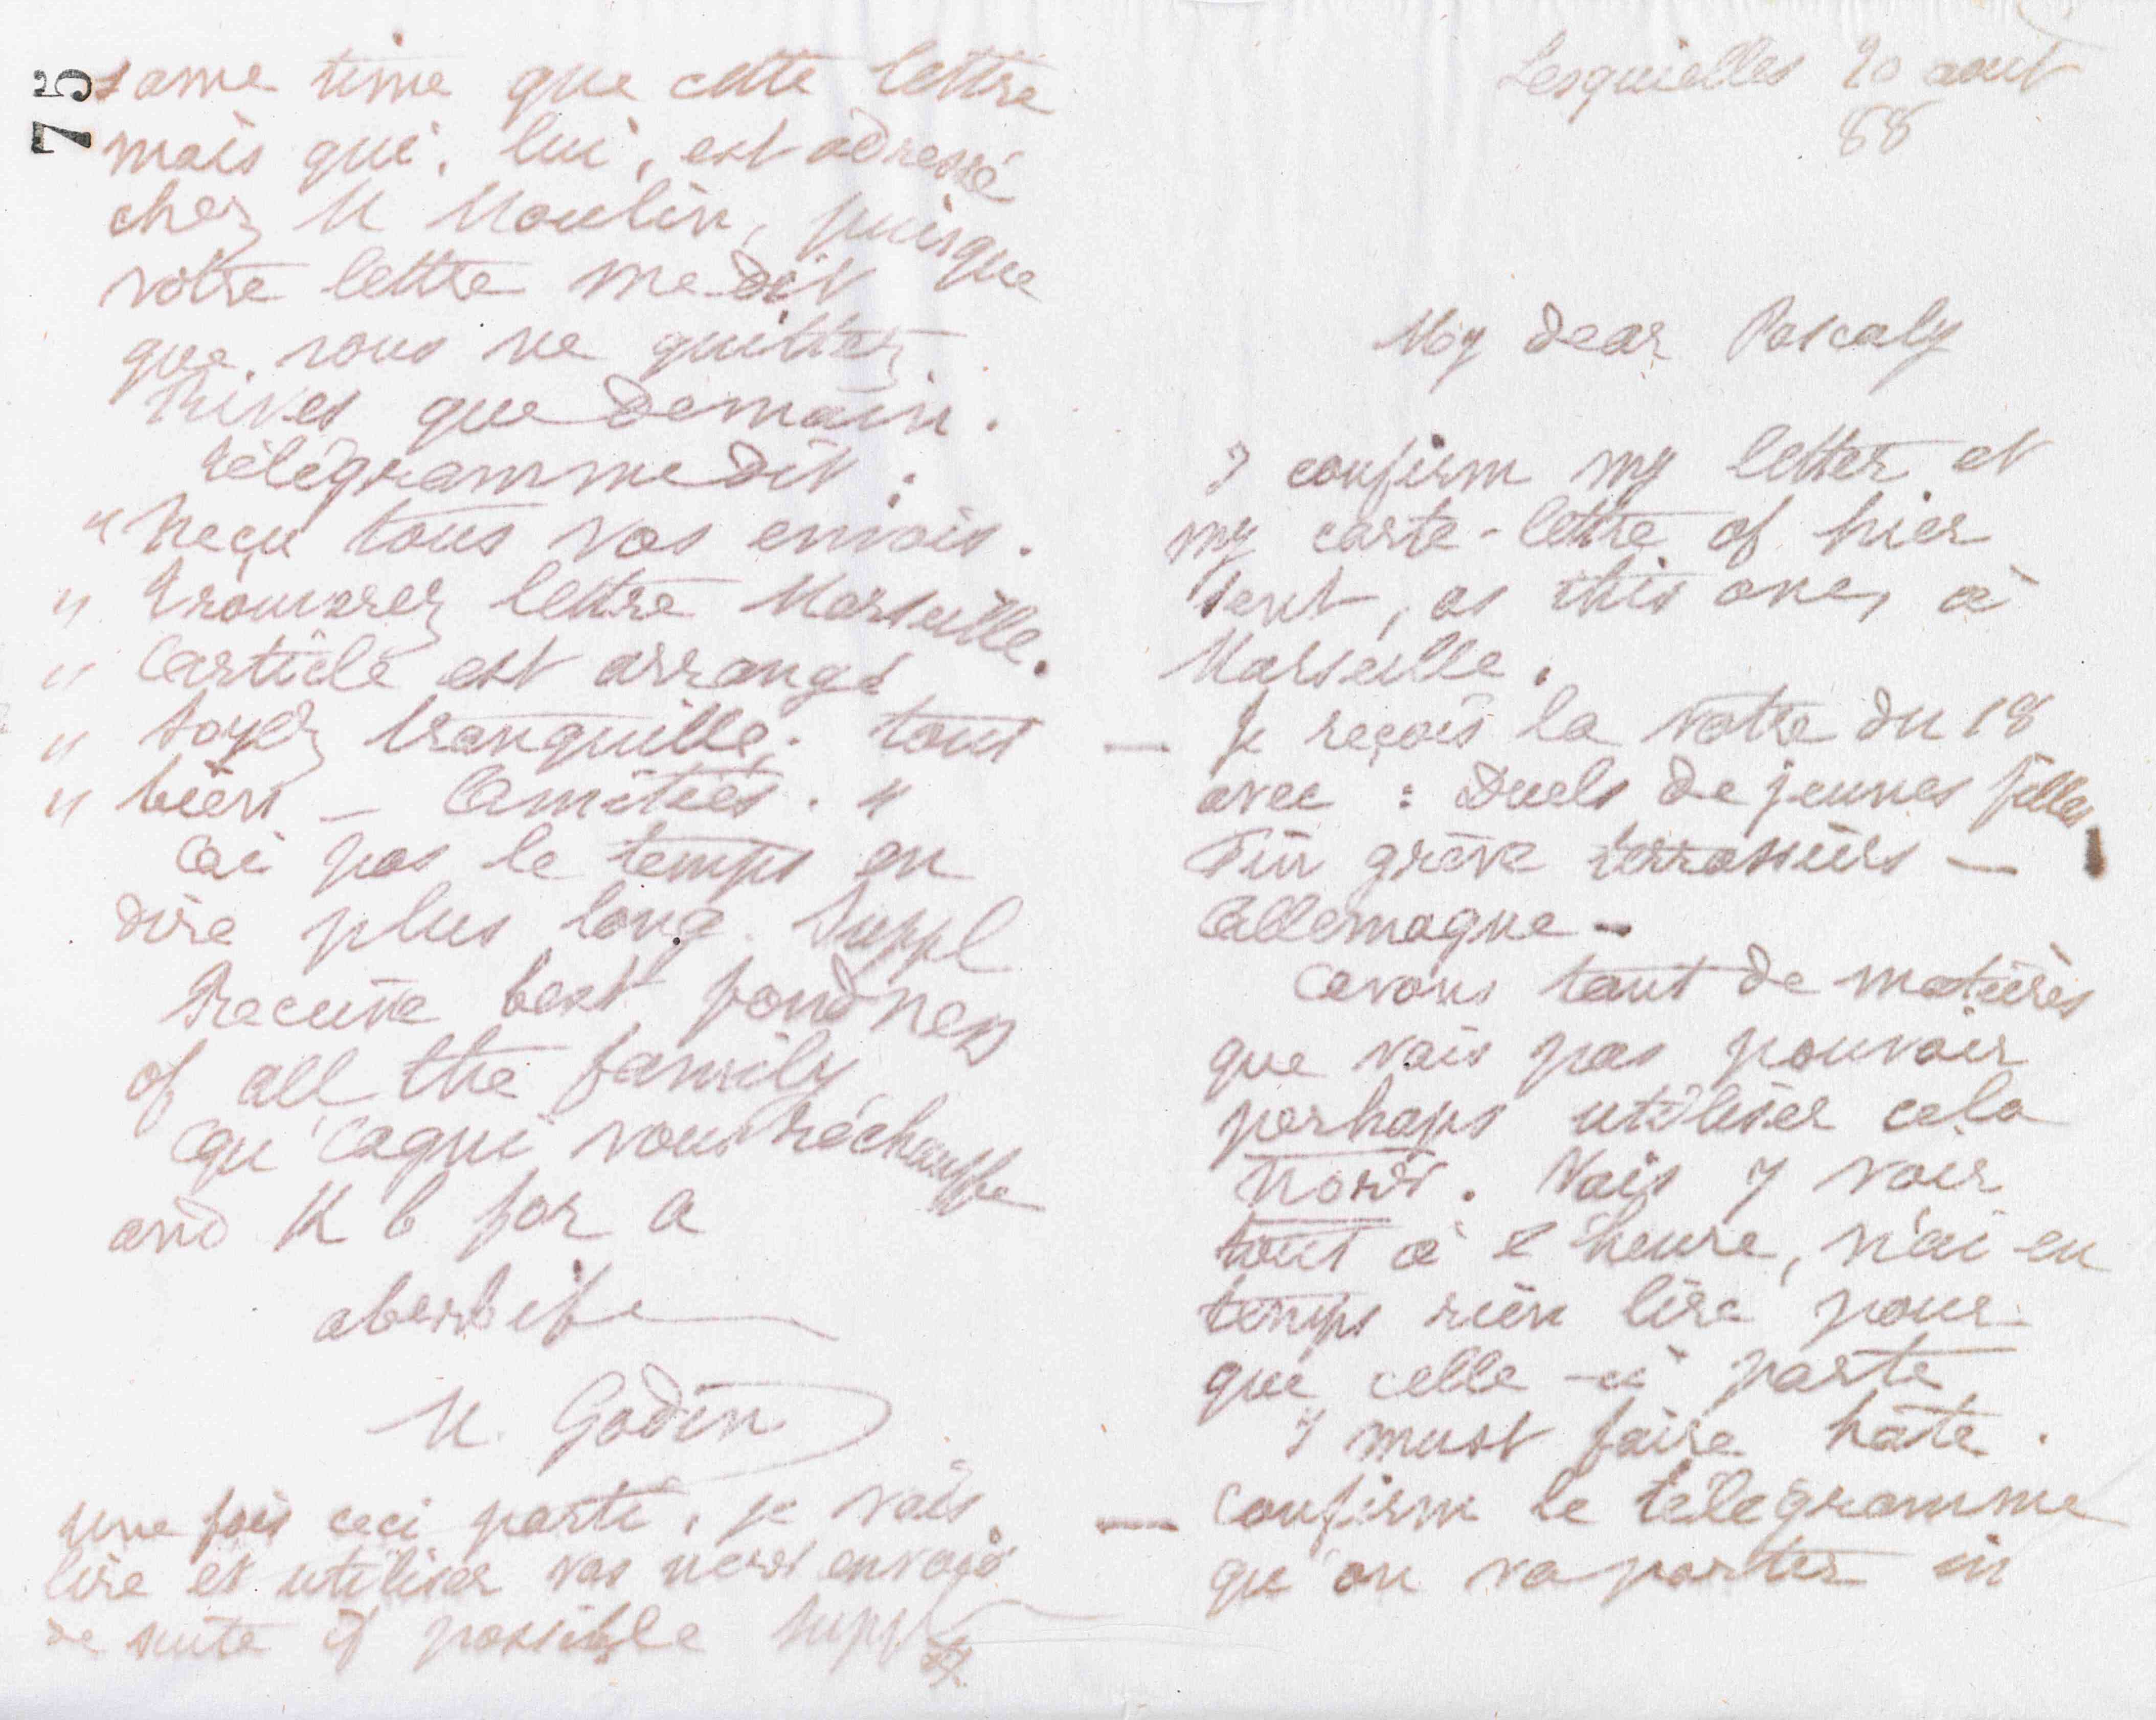 Lesquielles 20 aout
88
My dear Pascaly
I confirm my letter et
my carte-lettre of hier
sent, as this one, à
Marseille.
— Je reçois la votre du 18
avec : Duels de jeunes filles,
Fin grève terrassiers —
Allemagne -
Avons tant de matières
que vais pas pouvoir
perhaps utiliser cela
now. Vais y voir
tout à l'heure, n'ai eu
temps rien lire pour
que celle-ci parte
I must faire hâte.
— Confirm le télégramme
qu'on va porter in
75
same time que cette lettre
mais qui, lui, est adressé
chez M Moulin, puisque
votre lettre me dit
que vous ne quittez
Rives que demain.
Télégramme dit :
" Reçu tous vos envois.
" Trouverez lettre Marseille.
" Article est arrangé
" Soyez tranquille, tout
" bien — Amitiés. "
Ai pas le temps en
dire plus long. Suppl
Receive best fondness
of all the family
qui vous réchauffe
and K b for a
M. Godin
Une fois ceci parti, je vais
lire et utiliser vos envois
de suite if possible Suppl